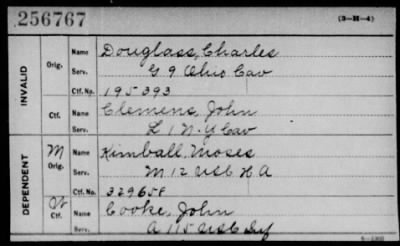 256767 (3-H-4)
INVALID
Orig. Name Douglass, Charles
Serv. G 9 Ohio Cav
Ctf. No. 195393
Ctf. Name Clemens, John
Serv. L 1 N.Y Cav
DEPENDENT
M Orig. Name Kimball, Moses
Serv. M 12 USC H A
Ctf. No. 329658
Ctf. Name Cooke, John
Serv. A 115 USC Inf